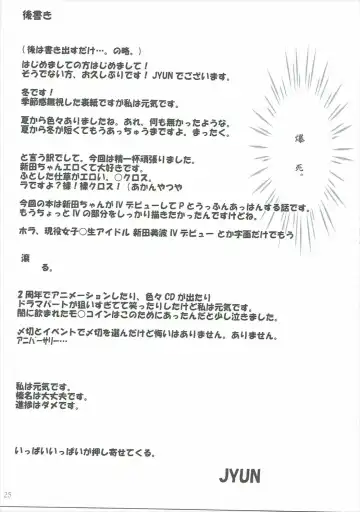 後書き
(後は書き出すだけ…。の略。)
はじめましての方はじめまして!
そうでない方、お久しぶりです! JYUNでございます。
冬です!
季節感無視した表紙ですが私は元気です。
夏から色々ありましたね。あれ、何も無かったような。
夏から冬が短くてもうあっちゅうまですよ。まったく。
爆死。
と言う訳でして。今回は精一杯頑張りました。
新田ちゃんエロくて大好きです。
ふとした仕草がエロい、○クロス。
ラですよ?裸!裸クロス!(あかんやつや
今回の本は新田ちゃんがIVデビューしてPとうっふんあっはんする話です。
もうちょっとIVの部分をしっかり描きたかったんですけどね。
ホラ、現役女子○生アイドル新田美波IVデビューとか字面だけでもう
滾
る。
2周年でアニメーションしたり、色々CDが出たり
ドラマパートが狙いすぎてて笑ったりしたけど私は元気です。
闇に飲まれたモ○コインはこのためにあったんだと少し泣きました。
〆切とイベントで〆切を選んだけど悔いはありません。ありません。
アニバーサリー…
私は元気です。
榛名は大丈夫です。
進捗はダメです。
いっぱいいっぱいが押し寄せてくる。
JYUN
25